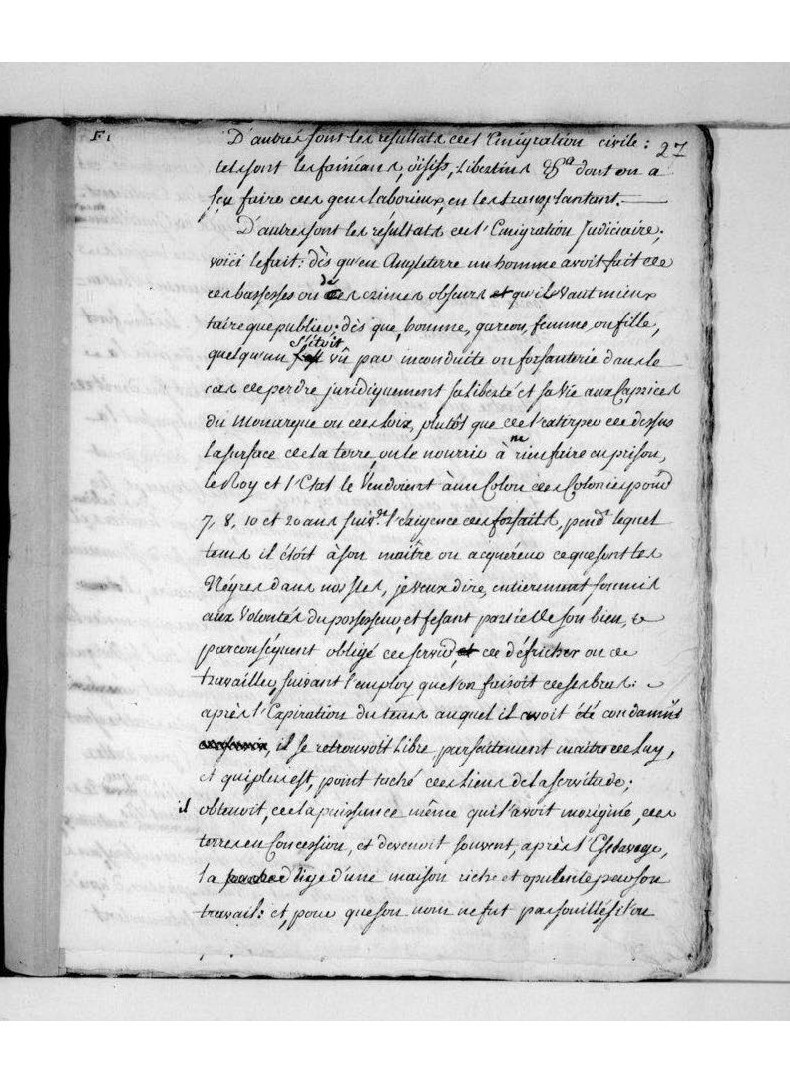 F1
27
D'autres sont les résultats de l'Emigration civile:
tels sont les fainéans, oisifs, Libertins &ca dont on a
sçu faire des gens laborieux, en les transplantant.
D'autres sont les résultats de l'Emigration Judiciaire;
voici le fait: dès qu'en Angleterre un homme avoit fait de
des bassesses ou de ces crimes obscurs et qu'il vaut mieux
taire que publier; dès que, homme, garçon, femme, ou fille,
quelqu'un s'étoit vû par inconduite ou forfanterie dans le
cas de perdre juridiquement sa liberté et sa vie aux Caprices
du Monarque ou des Loix, plutôt que de l'extirper de dessus
la surface de la terre, ou le nourrir à ne rien faire en prison,
le Roy et l'Etat le Vendoient à un Colon des Colonies pour
7, 8, 10 et 20 ans suivt. l'exigence des forfaits, pendt. lequel
tems il étoit à son maître ou acquéreur ce que sont les
Négres dans nos Isles, je veux dire, entierement soumis
aux Volontés du possesseur, et fesant partie de son bien, &
par conséquent obligé de servir, et de défricher ou de
travailler, suivant l'employ que l'on faisoit de ses bras:
après l'Expiration du tems auquel il avoit été condamné
, il se retrouvoit Libre parfaitement maître de Luy,
et qui plus est, point taché des Liens de la servitude;
il obtenoit, de la puissance même qui l'avoit morigéné, des
terres en Concession, et devenoit souvent, après l'Esclavage,
la tige d'une maison riche et opulente par son
travail: et, pour que son nom ne fut pas souillé, si l'on